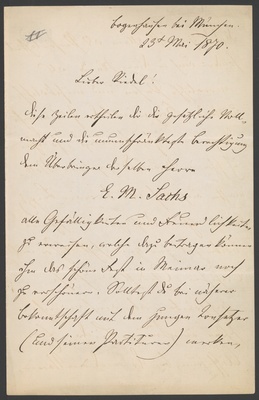 Bogenhausen bei München.
23t Mai 1870.
Lieber Riedel!
diese Zeilen ertheilen dir die gesetzliche Voll-
macht und die unumschränkteste Berechtigung
dem Überbringer derselben Herrn
E. M. Sachs
alle Gefälligkeiten und Freundlichkeiten
zu erweisen, welche dazu beitragen können
ihm das schöne Fest in Weimar noch
zu verschönern. Solltest du bei näherer
Bekanntschaft mit dem jungen Tonsetzer
(und seinen Partituren) merken,